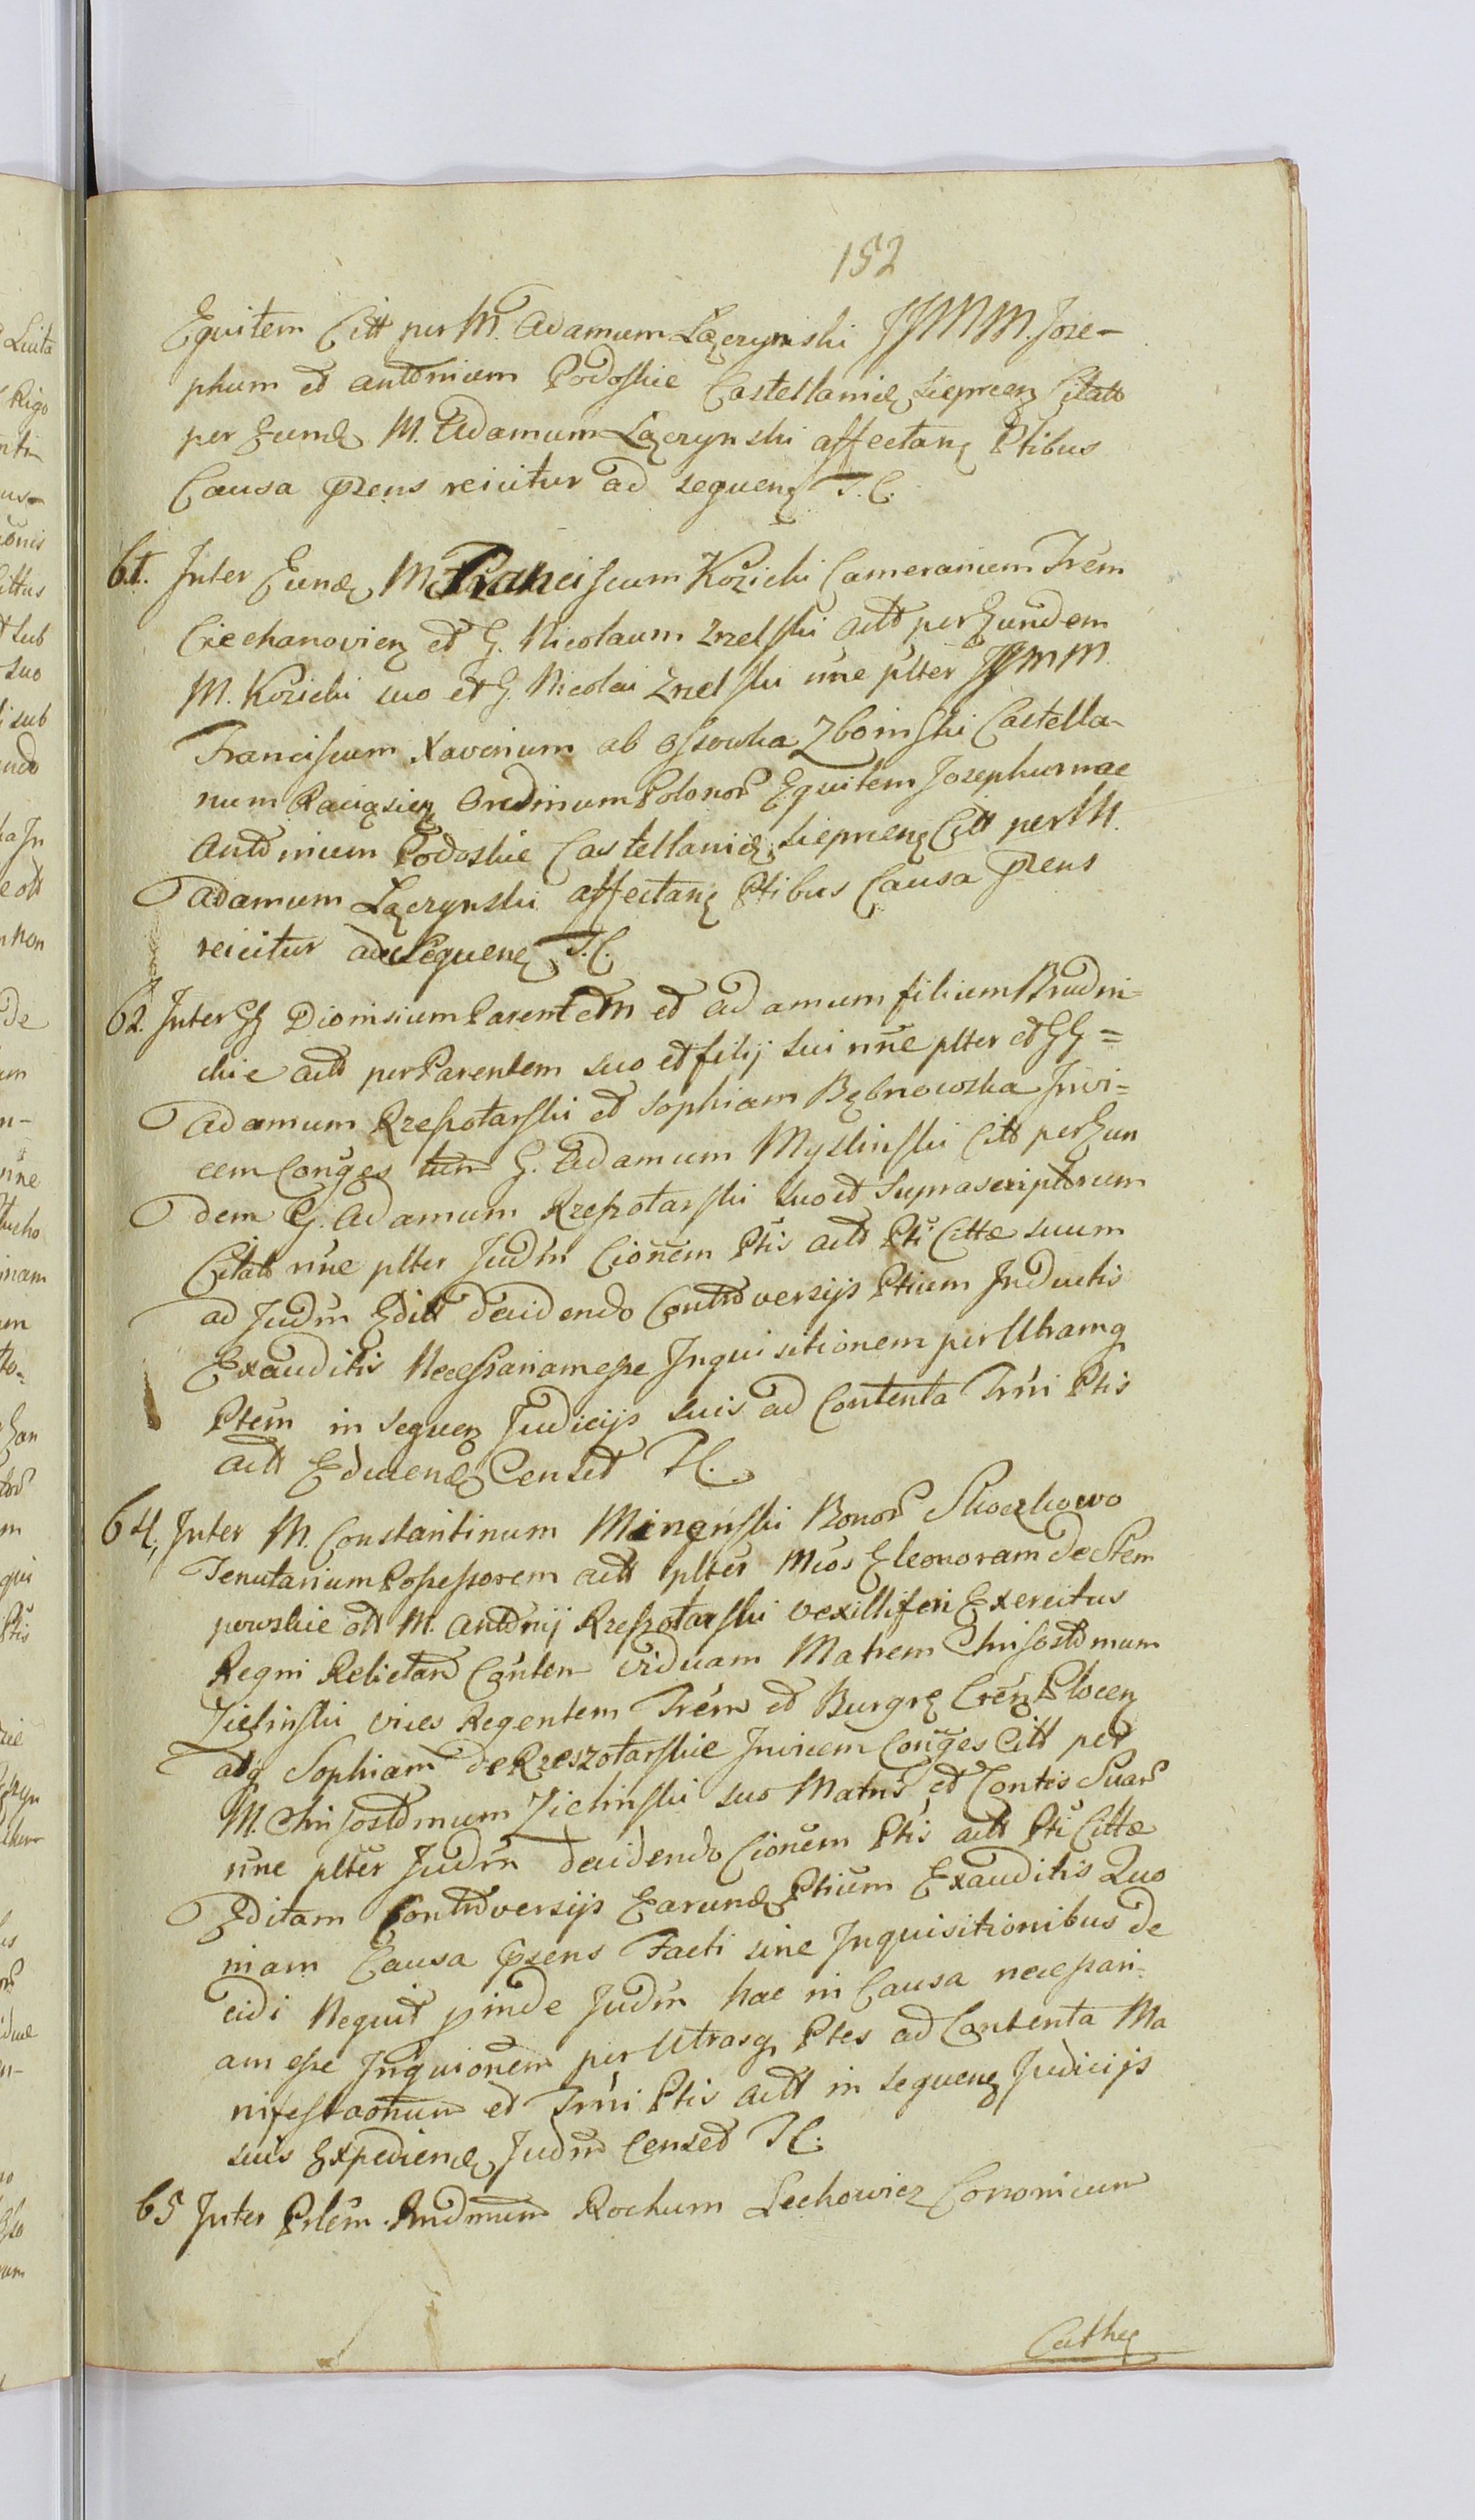 152
Equitem Citt per M. Adamum Łączynski JJMM. Jose-
phum et Antonium Podoskie Castellanid Sieprcen Citatt
per Eund M. Adamum Łączynski affectan Ptibus
Causa prens reicitur ad sequen T. C.
61. Inter Eund M. Franciscum Kozicki Camerarium Trem
Ciechanovien et G. Nicolaum Znelski actt per Eundem
M. Kozicki suo et G. Nicolai Znelski nne plter JJMM
Franciscum Xaverium ab Ossowka Zboinski Castella-
num Raciązien Ordinum Polonor Equitem Josephum ac
Antonium Podoskie Castellanid Sieprcen Citt per M.
Adamum Łączynski affectan Ptibus Causa prens
reicitur ad Sequen T. C.
62. Inter GG Dionisium Parentem et Adamum filium Brudni-
ckie actt per Parentem suo et filij sui nne plter et GG =
Adamum Rzeszotarski et Sophiam Bębnowska Invi=
cem Conges tum G. Adamum Myslinski Citt per Eun
dem G. Adamum Rzeszotarski suo et Suprascriptorum
Citatt nne plter Judm Cionem Ptis actt Pti Cittae suum
ad Judm Editt decidendo Controversijs Ptium Inductis
Exauditis Necessariam esse Inquisitionem per Utramq
Ptem in sequen Judicijs suis ad Contenta Trni Ptis
actt Educend Censet T C.
64, Inter M. Constantinum Minenski Bonor Skoczkowo
Tenutarium Possessorem actt plter Mcos Eleonoram de Stem
powskie olt M. Antonij Rzeszotarski vexilliferi Exercitus
Regni Relictam Conten viduam Matrem Chrisostomum
Zielinski vices Regentem Trem et Burgr Cren Plocen
atq Sophiam de Rzeszotarskie Invicem Conges Citt per
M. Chrisostomum Zielinski suo Matris et Contis Suar
nne plter Judm decidendo Cionem Ptis actt Pti Cittae
Editam Controversijs Earund Ptium Exauditis Quo
niam Causa prens Facti sine Inquisitionibus de
cidi Nequit pinde Judm hac in Causa necessari-
am esse Inquionem per Utrasq Ptes ad Contenta Ma
nifestaonum et Trni Ptis actt in sequen Judicijs
suis Expediend Judm Censet T C.
65 Inter Prlem Andmum Rochum Lechowicz Cononicum
Cathe